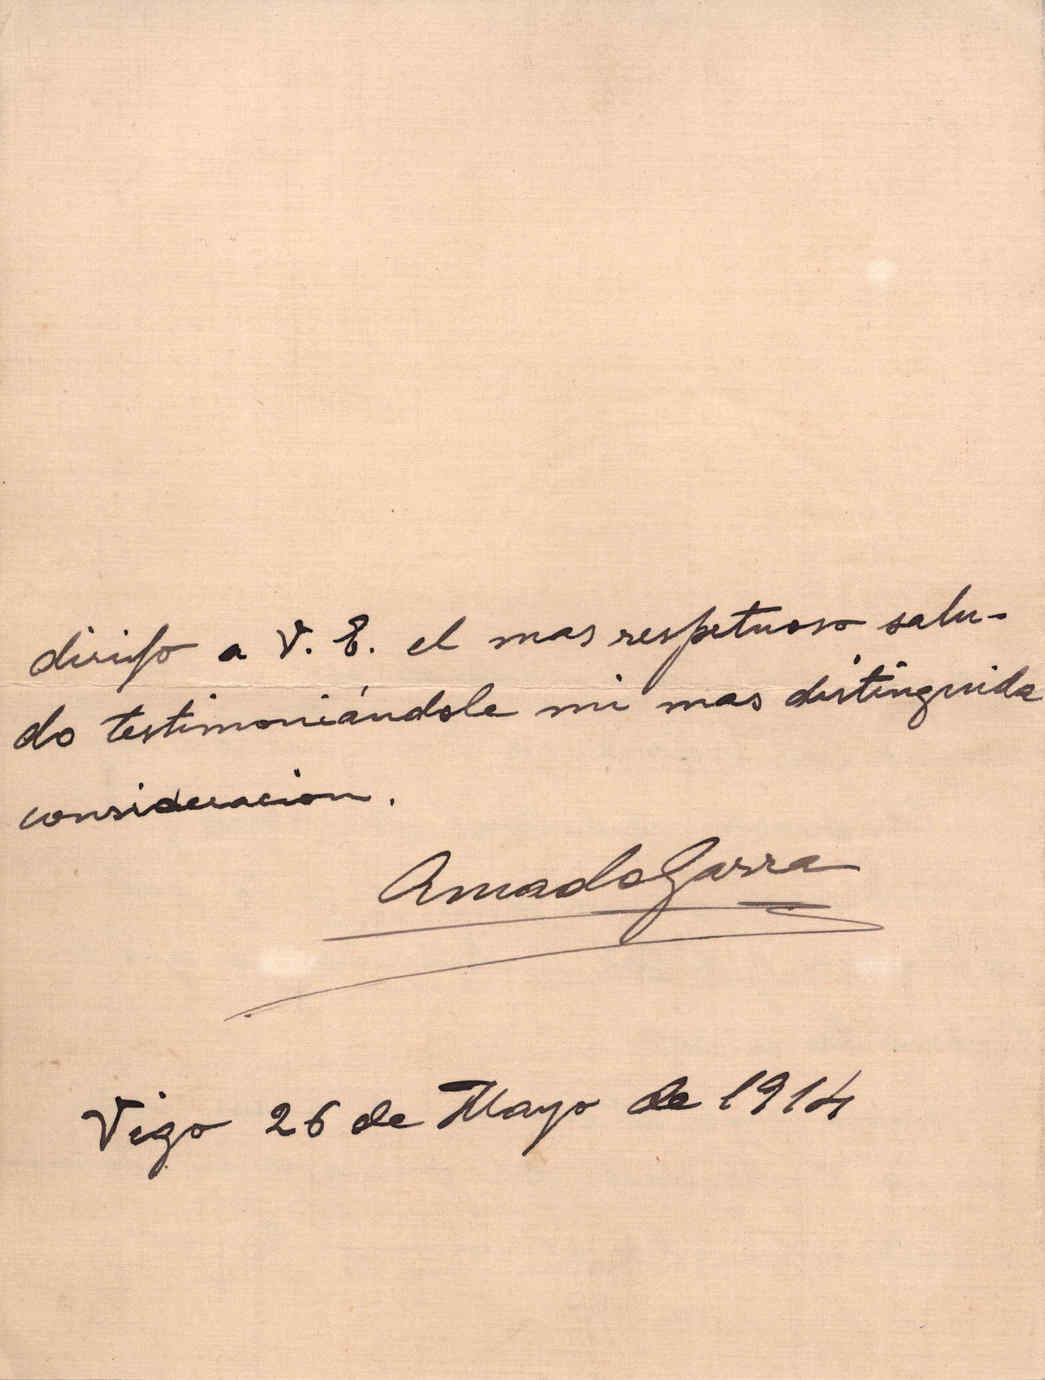 dirijo a V. E. el mas respetuoso salu-
do testimoniándole mi mas distinguida
consideracion.
Amado Garra
Vigo 26 de Mayo de 1914